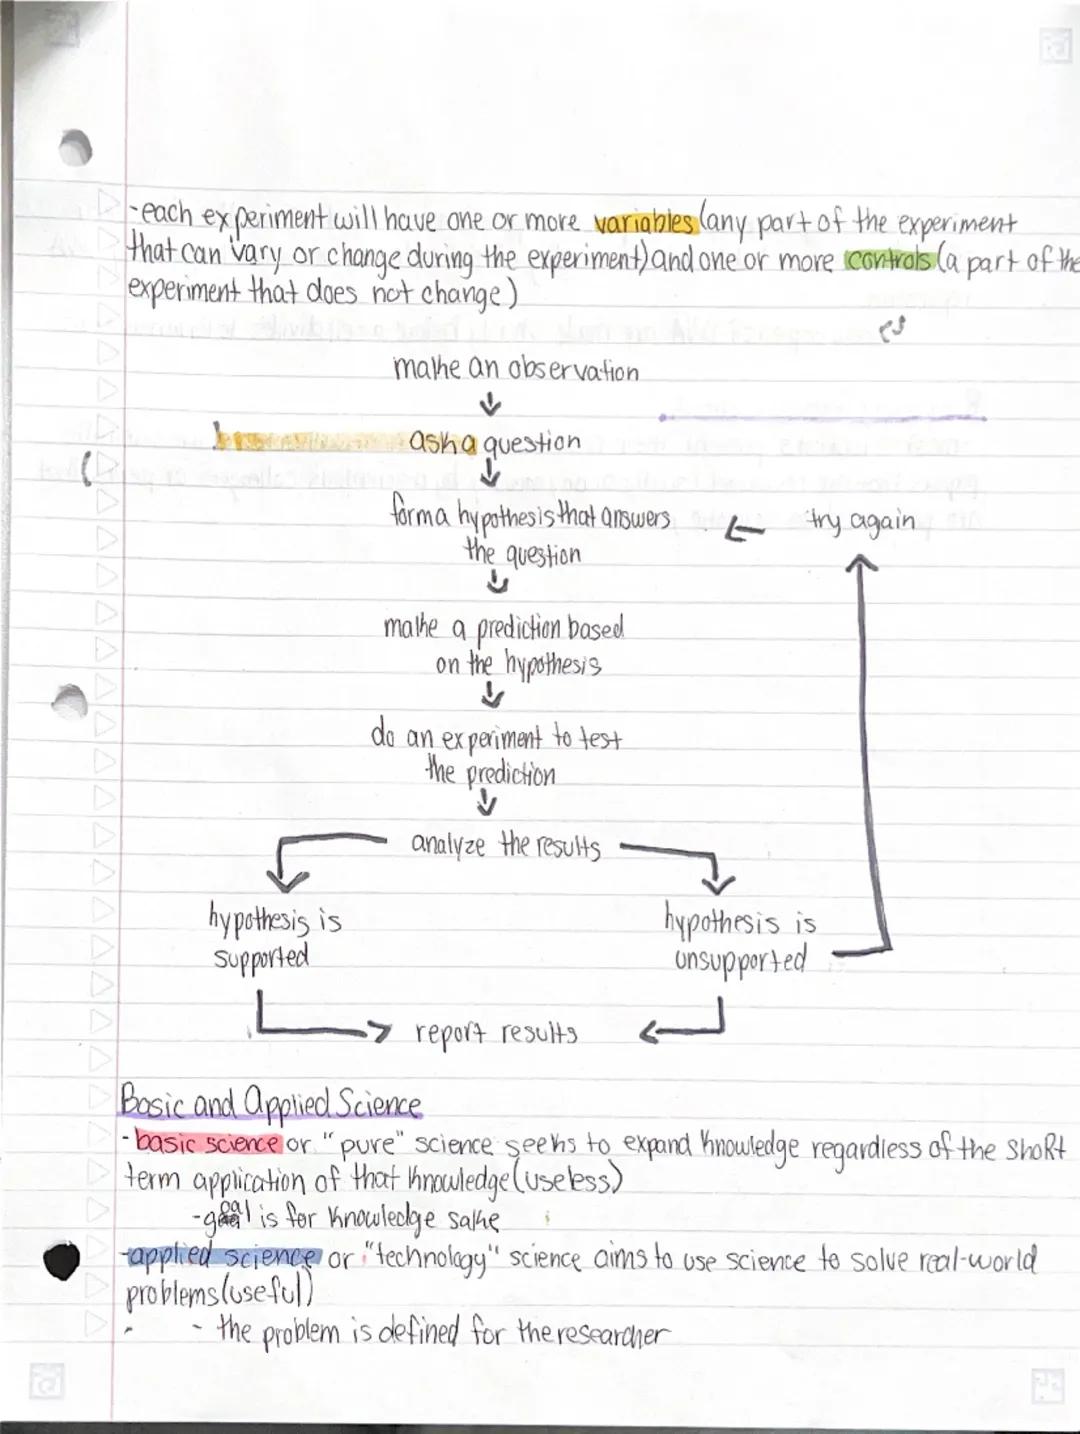 -each experiment will have one or more variables (any part of the experiment
that can vary or change during the experiment) and one or more controls (a part of the
experiment that does not change)
make an observation
↓
ask a question
↓
form a hypothesis that answers ← try again
the question
↓
make a prediction based
on the hypothesis
↓
do an experiment to test
the prediction
↓
analyze the results
hypothesis is hypothesis is
supported unsupported
report results
Basic and Applied Science
-basic science or "pure" science seeks to expand knowledge regardless of the shoRt
term application of that knowledge (useless)
-goal is for knowledge sake
-applied science or "technology" science aims to use science to solve real-world
problems (useful)
- the problem is defined for the researcher